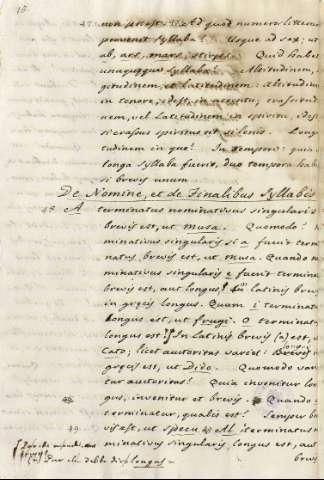 47. non potest. Ad quod numero littera
provenit Syllaba? Usque ad sex; ut
ab, ars, mars, stirps. Quid habet
unaquaeque Syllaba? Altitudinem,
gitudinem, et latitudinem: altitudin
in tenore, idest, in accentu, crassitud
nem, vel latitudinem in spiritu, idest
si crassus spiritus sit si lenis. Long
tudinem in quo? In tempore: quia
longa Syllaba fuerit, duo tempora habe
si brevis unum
De Nomine, et de Finalibus Syllabis
48. A terminatus nominativus singularis
brevis est, ut musa. Quomodo?
minativus singularis si a fuerit term
natus, brevis est, ut musa. Quando n
minativus singularis e fuerit termina
brevis est, aut longus? In latinis brev
in grecis longus. Quam i terminat
longus est, ut frugi. O terminat
longus est? In latinis brevis (a) est, u
Cato; licet autoritas variet. Brevis
grecis est, ut Dido. Quomodo var
tur autoritas? Quia invenitur lon
gus, invenitur et brevis. Quando
terminatur, qualis est? Semper b
vis est, ut specu. Al. terminatus
49. minativus singularis, longus est, aut
brev
(a) Par che debba dire longus